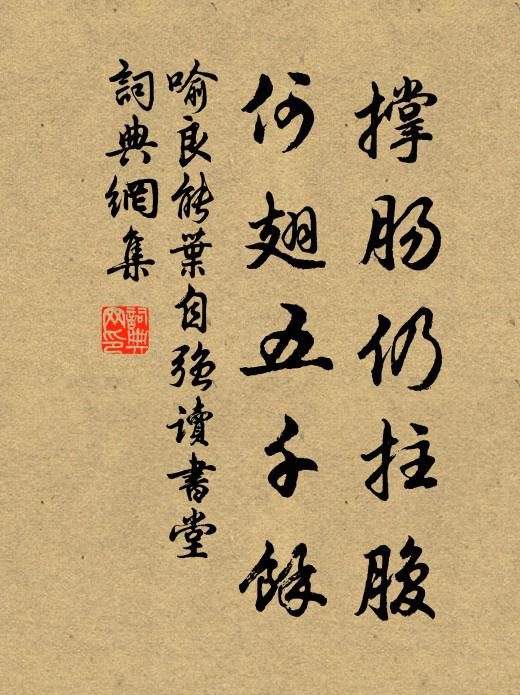 撐腸仍拄腹
何翅五千餘
喻良能葉自強讀書堂
詞典網集
詞典網印